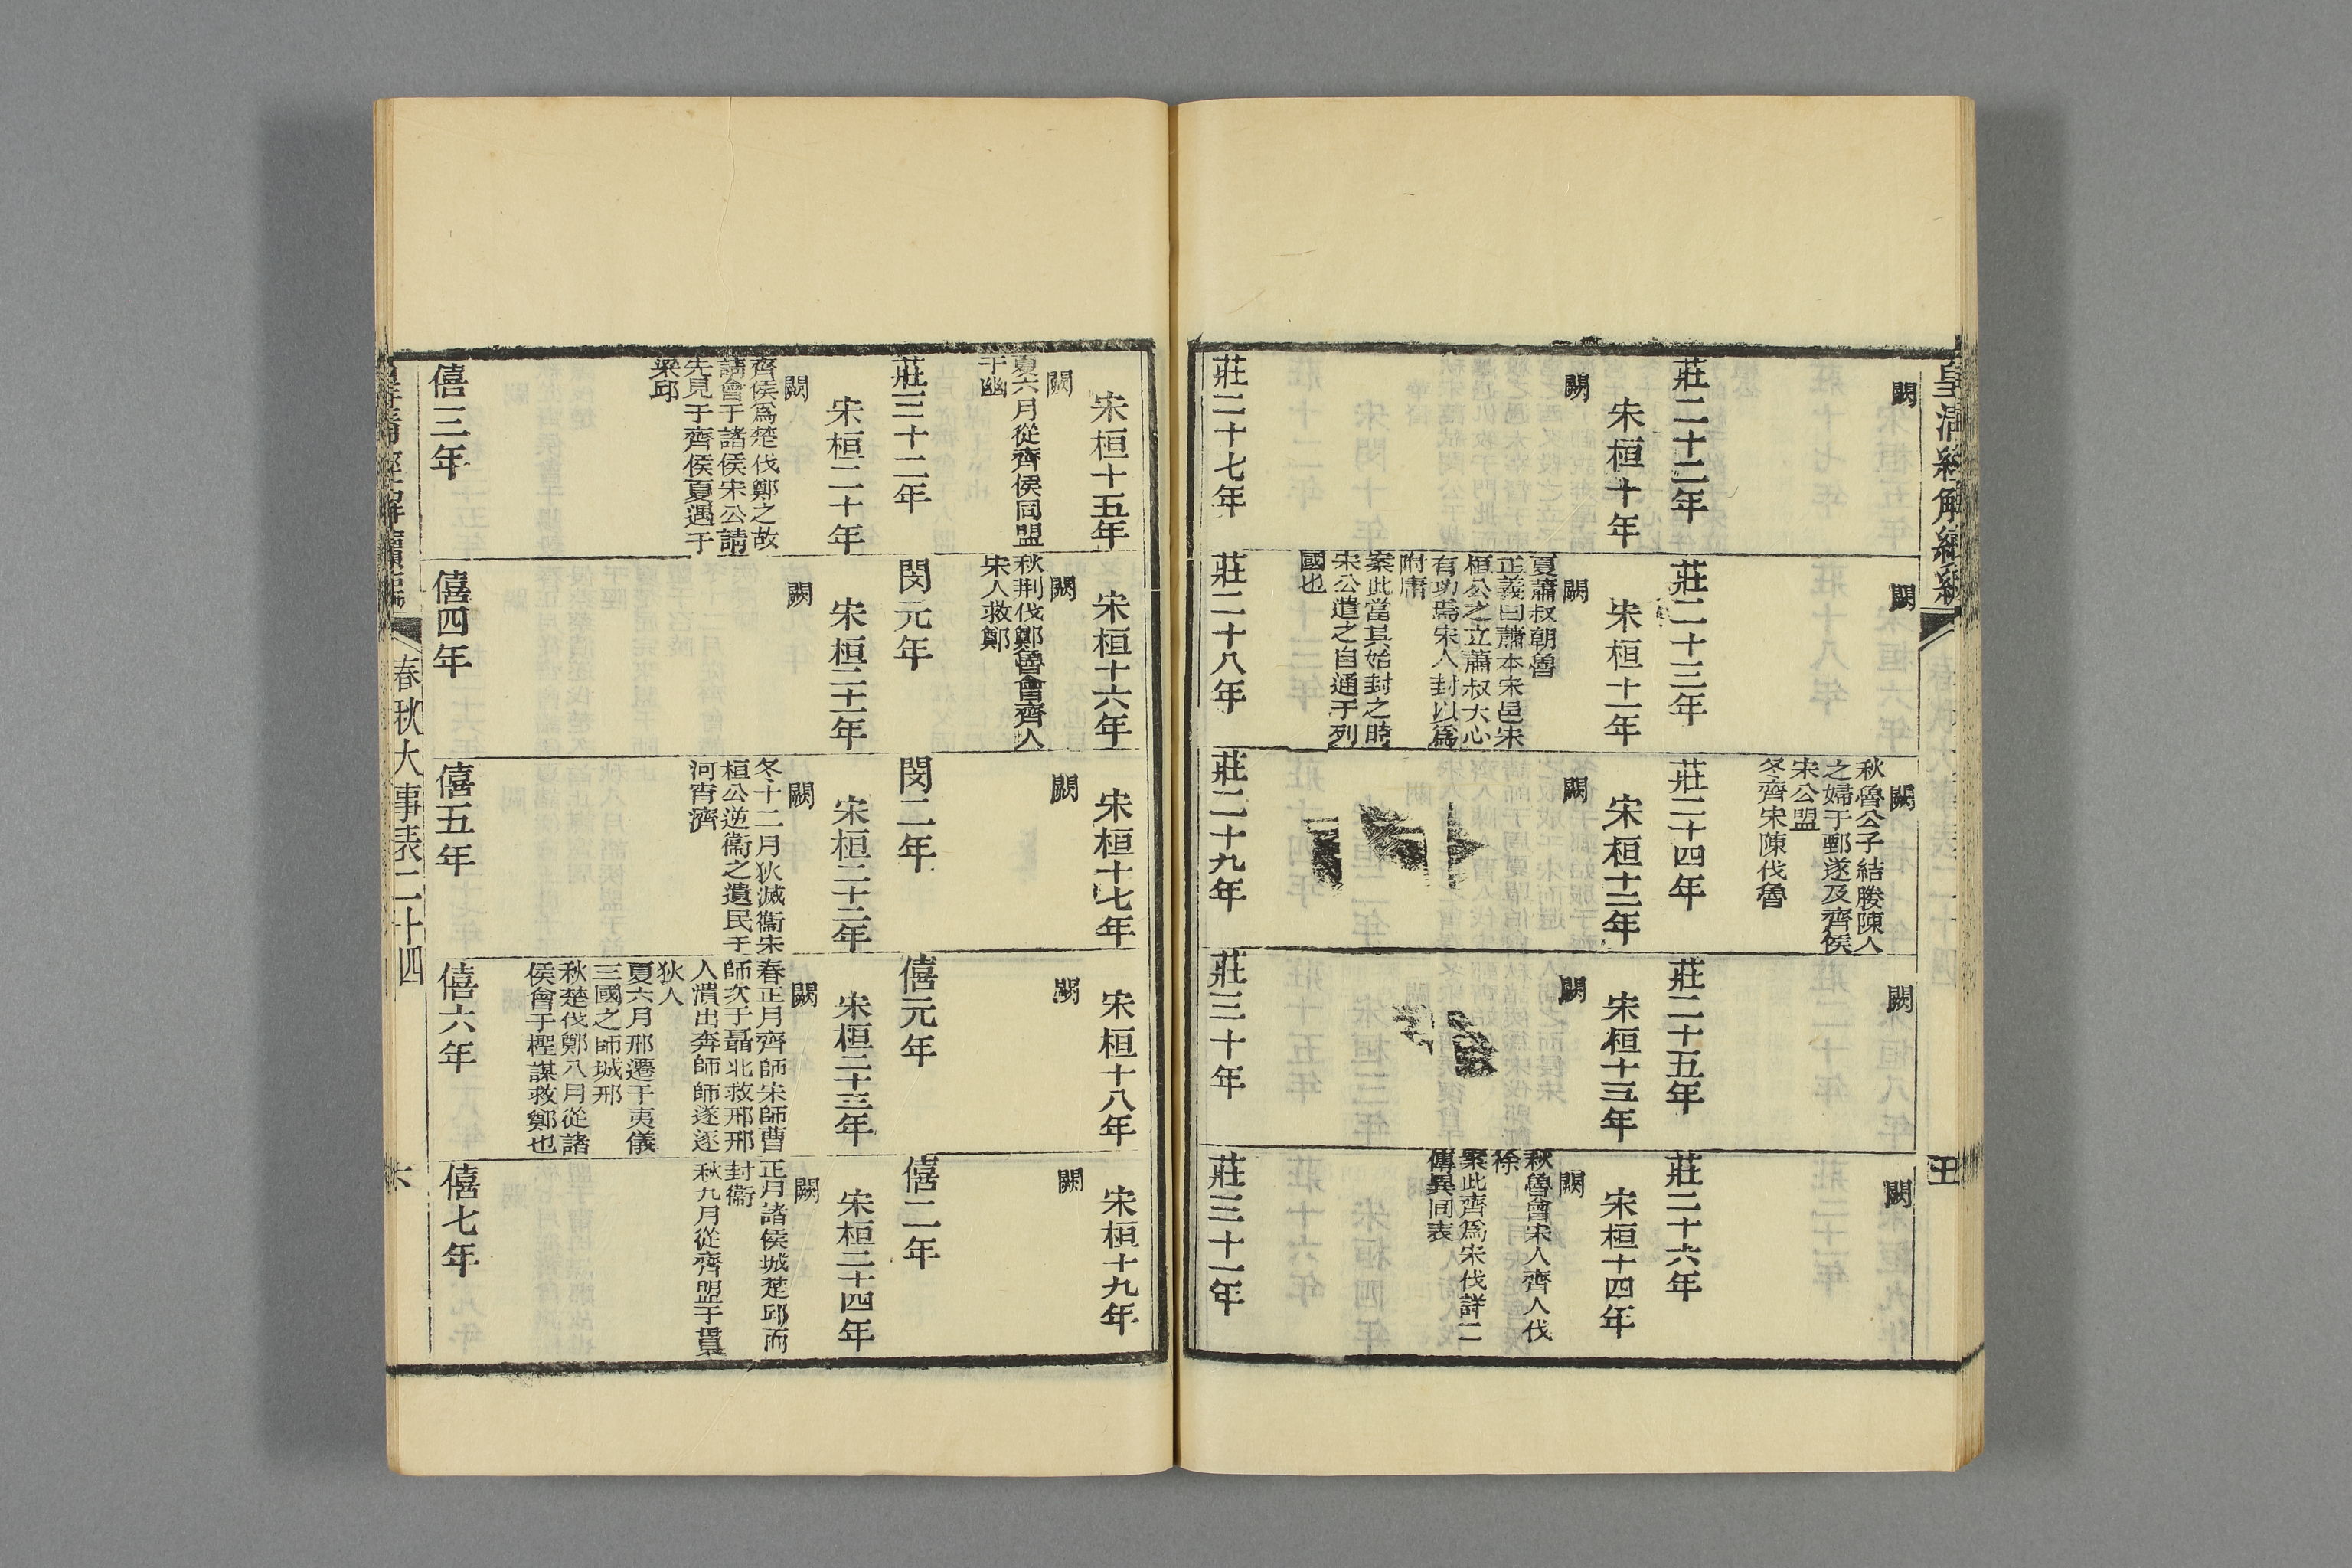 皇清經解續編
闕
闕
闕
秋魯公子結媵陳人
之婦于鄄遂及齊侯
宋公盟
冬齊宋陳伐魯
闕
闕
莊二十二年
宋桓十年
闕
莊二十三年
宋桓十一年
闕
夏蕭叔朝魯
正義曰蕭本宋邑宋
桓公之立蕭叔大心
有功焉宋人封以為
附庸
案此當其始封之時
宋公遣之自通于列
國也
莊二十四年
宋桓十二年
闕
莊二十五年
宋桓十三年
闕
莊二十六年
宋桓十四年
闕
秋魯會宋人齊人伐
徐
案此齊為宋伐詳二
傳異同表
莊二十七年
莊二十八年
莊二十九年
莊三十年
莊三十一年
宋桓十五年
闕
夏六月從齊侯同盟
于幽
宋桓十六年
闕
秋荆伐鄭魯會齊人
宋人救鄭
宋桓十七年
闕
宋桓十八年
闕
宋桓十九年
闕
莊三十二年
宋桓二十年
闕
齊侯為楚伐鄭之故
請會于諸侯宋公請
先見于齊侯夏遇于
梁邱
閔元年
宋桓二十一年
闕
閔二年
宋桓二十二年
闕
冬十二月狄滅衞宋
桓公逆衞之遺民于
河宵濟
僖元年
宋桓二十三年
闕
春正月齊師宋師曹
師次于聶北救邢邢
人潰出奔師師遂逐
狄人
夏六月邢遷于夷儀
三國之師城邢
秋楚伐鄭八月從諸
侯會于檉謀救鄭也
僖二年
宋桓二十四年
闕
正月諸侯城楚邱而
封衞
秋九月從齊盟于貫
僖三年
僖四年
僖五年
僖六年
僖七年
春秋大事表二十四
六